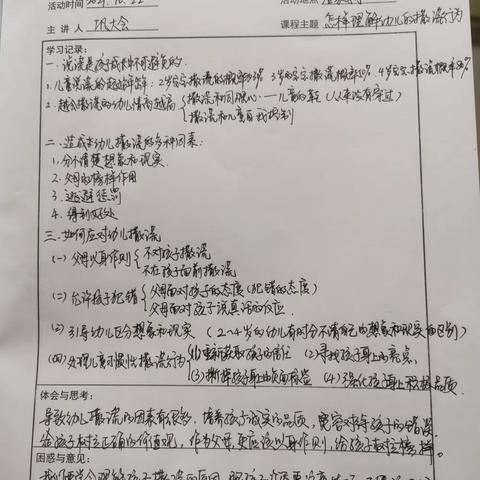 活动时间 2021.10.22 活动地点
主讲人 巩大会 课程主题 怎样理解幼儿的撒谎行为
学习记录:
一、说谎是孩子成长中不可避免的.
1.儿童说谎的起始年龄: 2岁 撒谎的概率 3岁 撒谎概率 4岁 撒谎概率
2.越会撒谎的幼儿情商越高 撒谎和同理心 (从来没有穿过)
撒谎和儿童自我控制
二、造成幼儿撒谎的多种因素:
1.分不清楚想象和现实.
2.父母的榜样作用
3.逃避惩罚
4.得到好处
三、如何应对幼儿撒谎
(一)父母以身作则 不对孩子撒谎
不在孩子面前撒谎
(二)允许孩子犯错 父母面对孩子的态度(犯错的态度)
父母面对孩子说真话的反应.
(三)引导幼儿区分想象和现实 (2~4岁的幼儿有时分不清自己的想象和现实的区别)
(四)处理儿童习惯性撒谎行为 (1)重新获取孩子的信任 (2)寻找孩子身上的亮点,
(3)撕掉孩子身上的负面标签 (4)强化孩子身上积极品质.
体会与思考:
导致幼儿撒谎的因素有很多,培养孩子诚实的品质,宽容对待孩子的错误.
给孩子树立正确的价值观,作为父母,更应该以身作则,给孩子树立榜样。
困惑与意见: